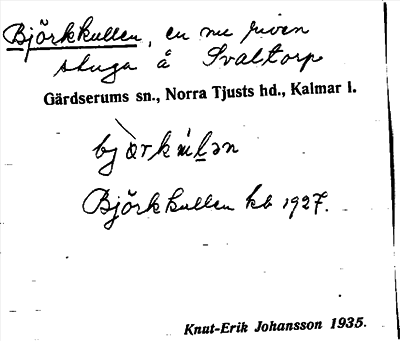 Björkkullen, en nu riven
stuga å Svaltorp
Gärdserums sn., Norra Tjusts hd., Kalmar l.
Björkkullen kb 1927.
Knut-Erik Johansson 1935.